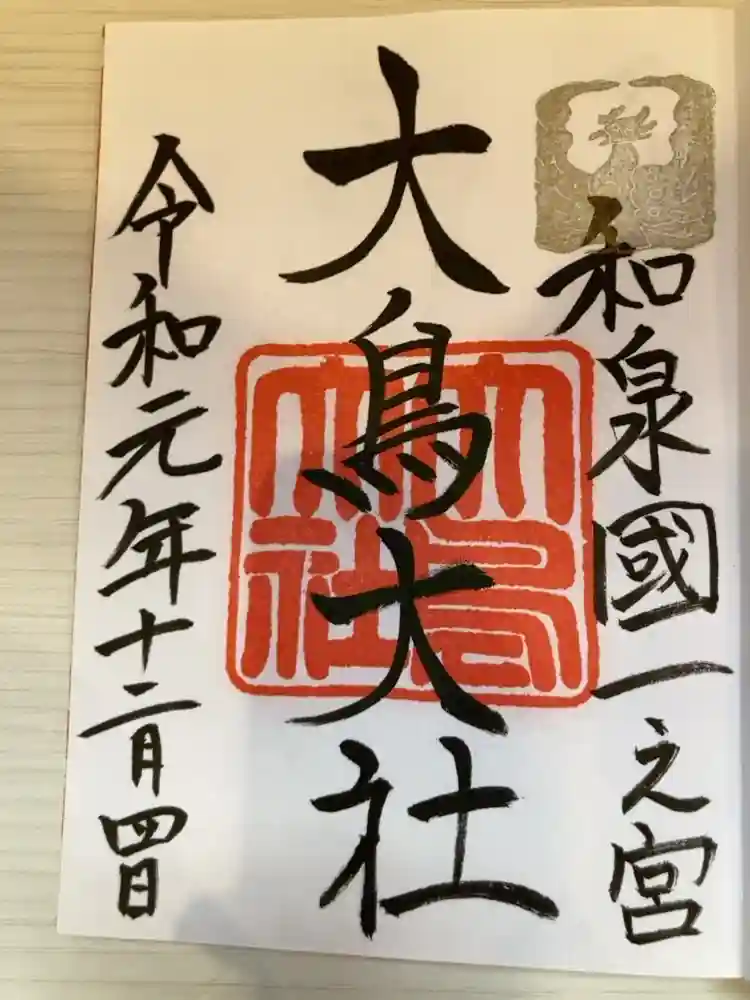 和泉國一之宮
大鳥大社
大鳥大社
令和元年十二月四日